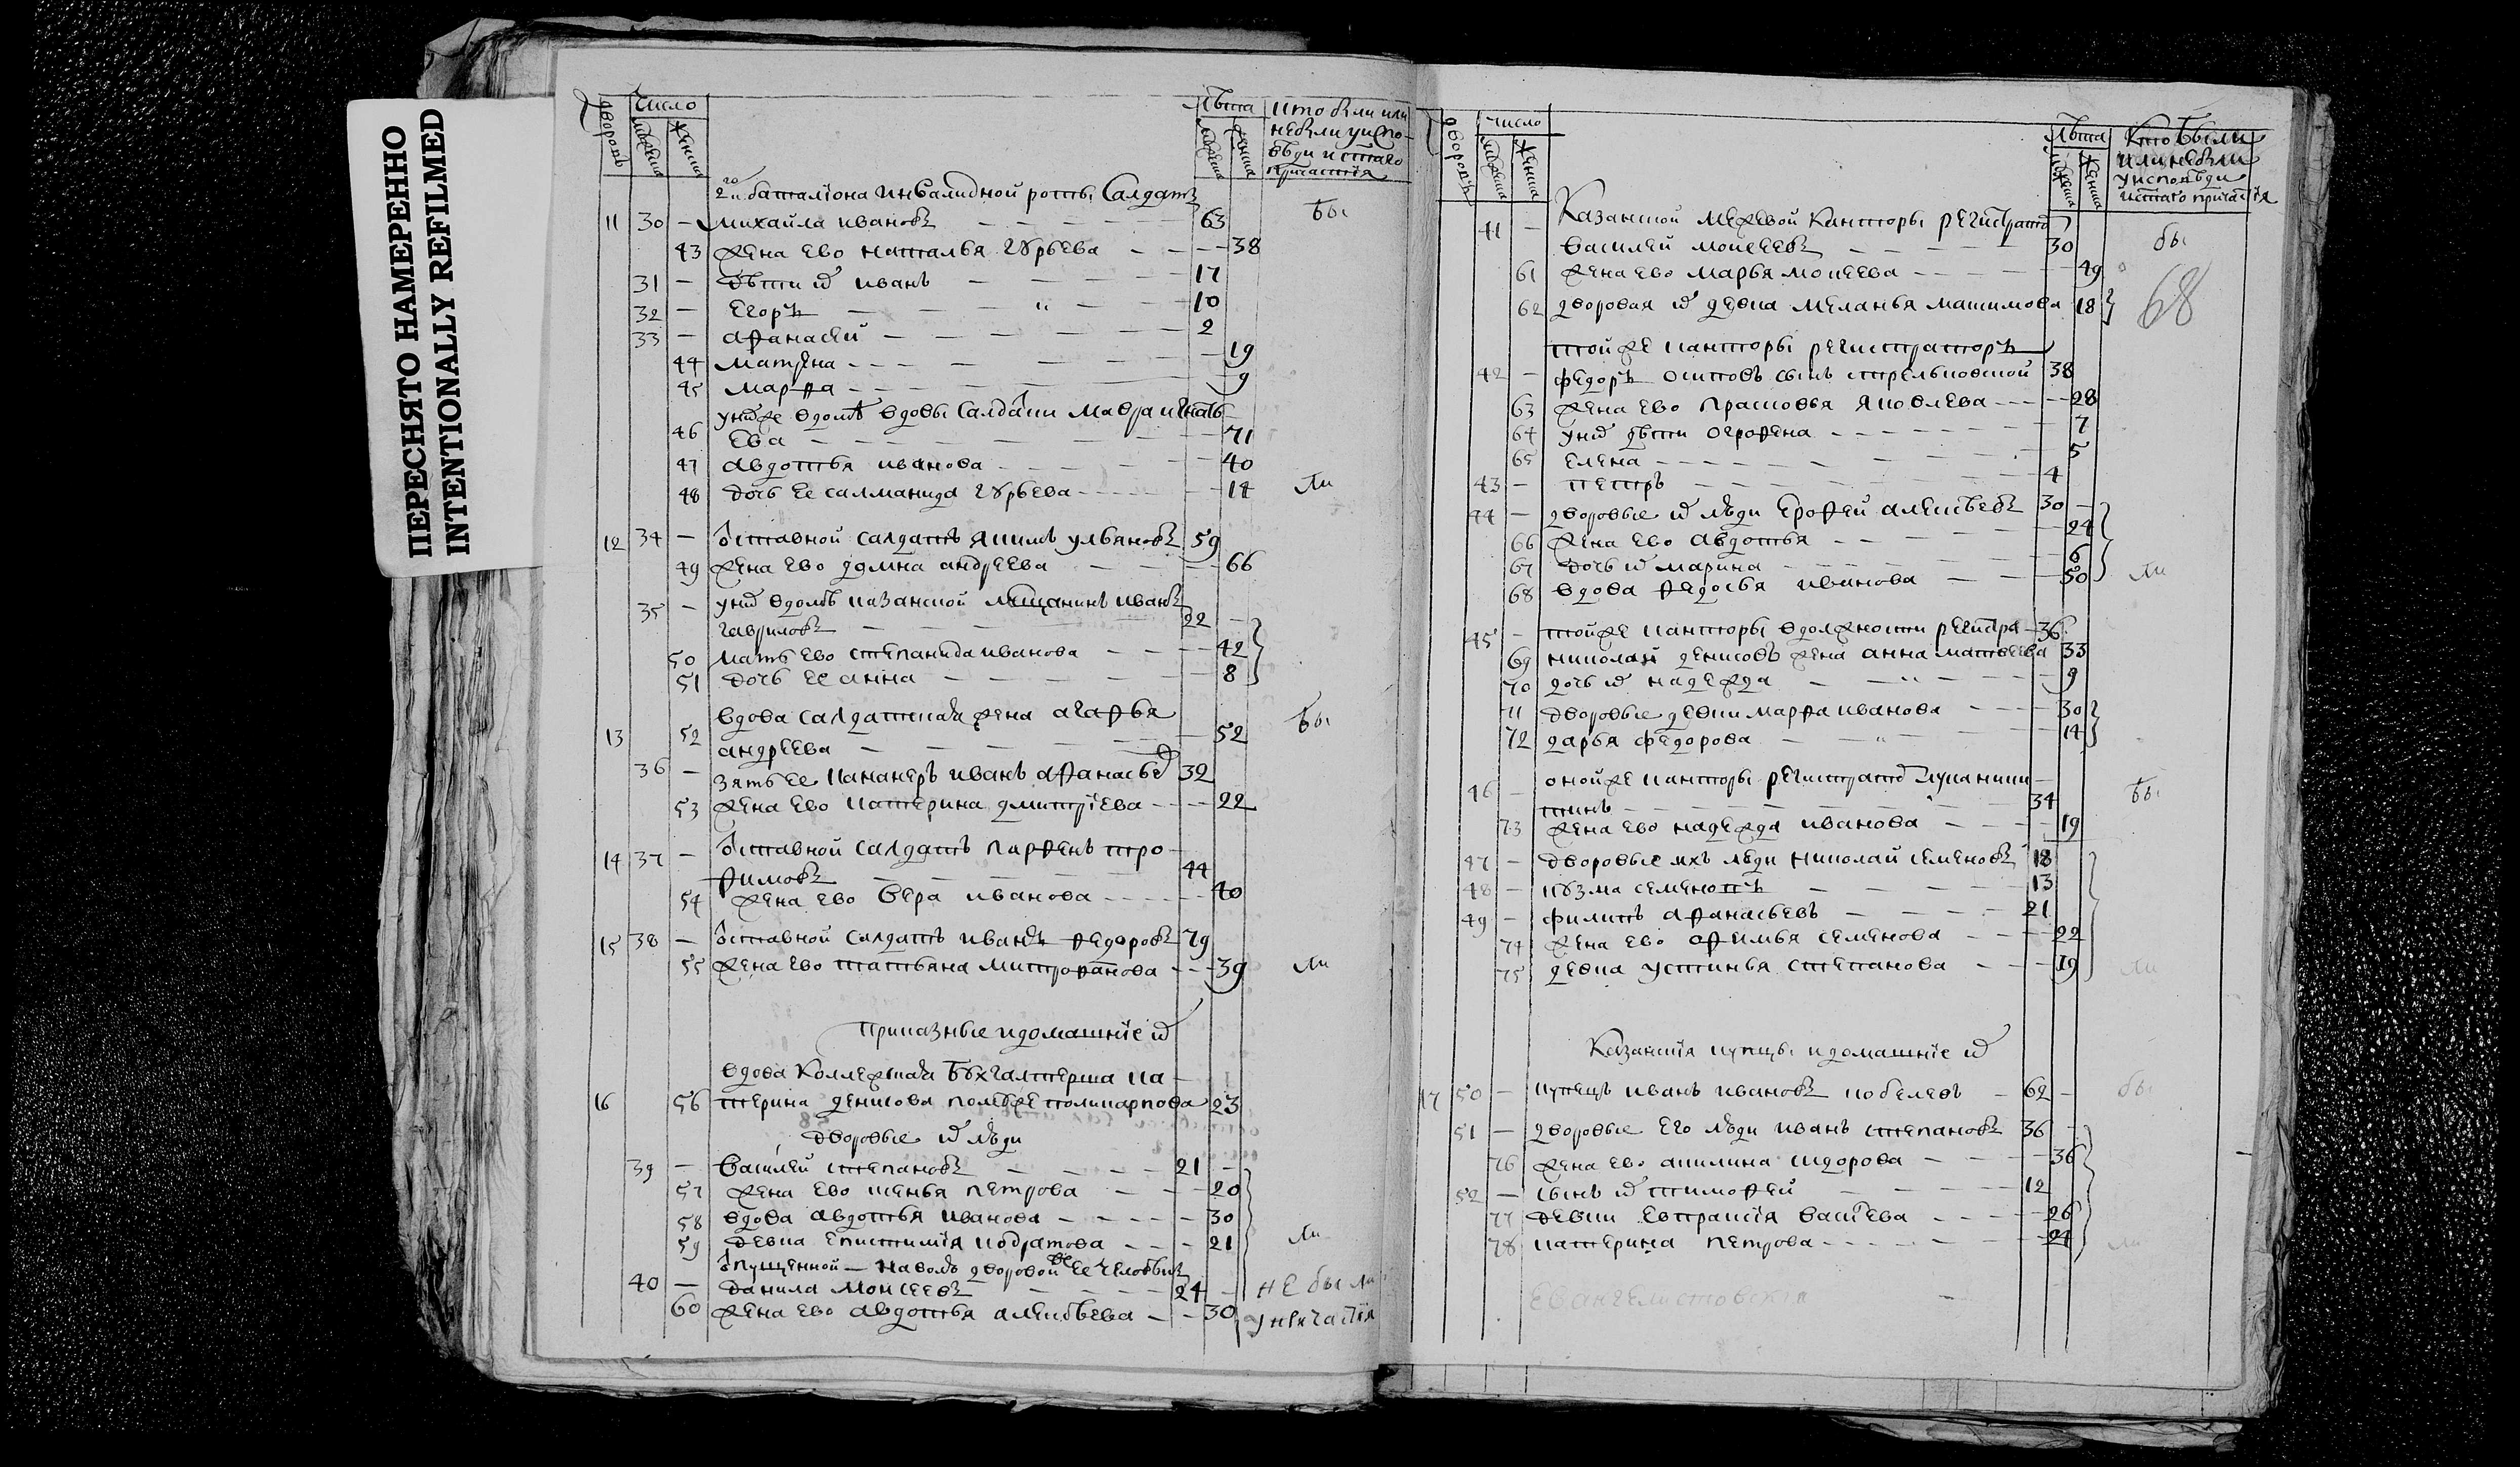 ПЕРЕСНЯТО НАМЕРЕННО
INTENTIONALLY REFILMED
дворовъ
Число
мужеска
женска
Лѣта
мужеска
женска
кто были или
небыли уиспо-
вѣди и стаго
причастія
2го баталiона инвалидной роты Салдатъ
11 30 — михаила ивановъ — 63
бы
43 жена ево наталья гурьева — 38
31 — дѣти их иванъ — 17
32 — Егоръ — 10
33 — афанасей — 2
44 матрена — 19
45 марфа — 9
унихже вдомѣ вдовы Салдатки мавра игнать-
46 ева — 71
47 авдотья иванова — 40
48 дочь ее салманида гурьева — 14
ли
12 34 — отставной салдатъ якимъ ульяновъ 59
49 жена ево домна андреева — 66
35 — уних вдомѣ казанской мещанинъ иванъ
гавриловъ — 22
50 мать ево степанида иванова — 42
51 дочь ее анна — 8
вдова салдатская жена агафья
13 52 андреева — 52
бы
36 — зять ее канонеръ иванъ афанасьев 32
53 жена ево катерина дмитрiева — 22
14 37 — отставной салдатъ парфенъ тро-
фимовъ — 44
54 жена ево вера иванова — 40
15 38 — отставной салдатъ иванъ федоровъ 79
55 жена ево татьяна митрофанова — 39
ли
приказные идомашнiе их
вдова коллежская бухгалтерша ка-
16 56 терина денисова поликарпова 23
дворовые их люди
39 — василей степановъ — 21
57 жена ево ксенья петрова — 20
58 вдова авдотья иванова — 30
59 девка епистимiя кодратова — 21
ли
отпущенной — наволю дворовой ее человѣкъ
40 — данила моисеевъ — 24
не были
60 жена ево авдотья алексѣева — 30
упричастiя
дворовъ
число
мужеска
женска
Лѣта
мужеска
женска
Кто были
или небыли
уисповѣди
истаго причастiя
Казанской межевой канторы регистратор
41 — василей моисеевъ — 30
бы
61 жена ево марья моисеева — 49
62 дворовая их девка меланья макимова 18
68
тойже канторы регистраторъ
42 — федоръ осиповъ сынъ стрельковской 38
63 жена ево прасковья яковлева — 28
64 уних дѣти огрофена — 7
65 елена — 5
43 — петръ — 4
44 — дворовые их люди ерофей алексѣевъ 30
66 жена ево авдотья — 24
67 дочь их марина — 6
68 вдова федосья иванова — 50
ли
45 — тойже канторы вдолжности регистра 36
69 николай денисовъ жена анна матвеева 33
70 дочь их надежда — 9
71 дворовые девки марфа иванова — 30
72 дарья федорова — 14
46 — онойже канторы регистратор лука ники-
тинъ — 34
бы
73 жена ево надежда иванова — 19
47 — дворовые ихъ люди николай семеновъ 18
48 — козма семеновъ — 13
49 — филипъ афанасьевъ — 21
74 жена ево афимья семенова — 22
75 девка устинья степанова — 19
ли
Казанскiя купцы идомашнiе их
17 50 — купецъ иванъ ивановъ кобелевъ — 62
бы
51 — дворовые его люди иванъ степановъ 36
76 жена ево акилина сидорова — 36
52 — сынъ их тимофей — 12
77 девки евпраксiя васiева — 26
78 катерина петрова — 24
ли
Евангелистовскiя